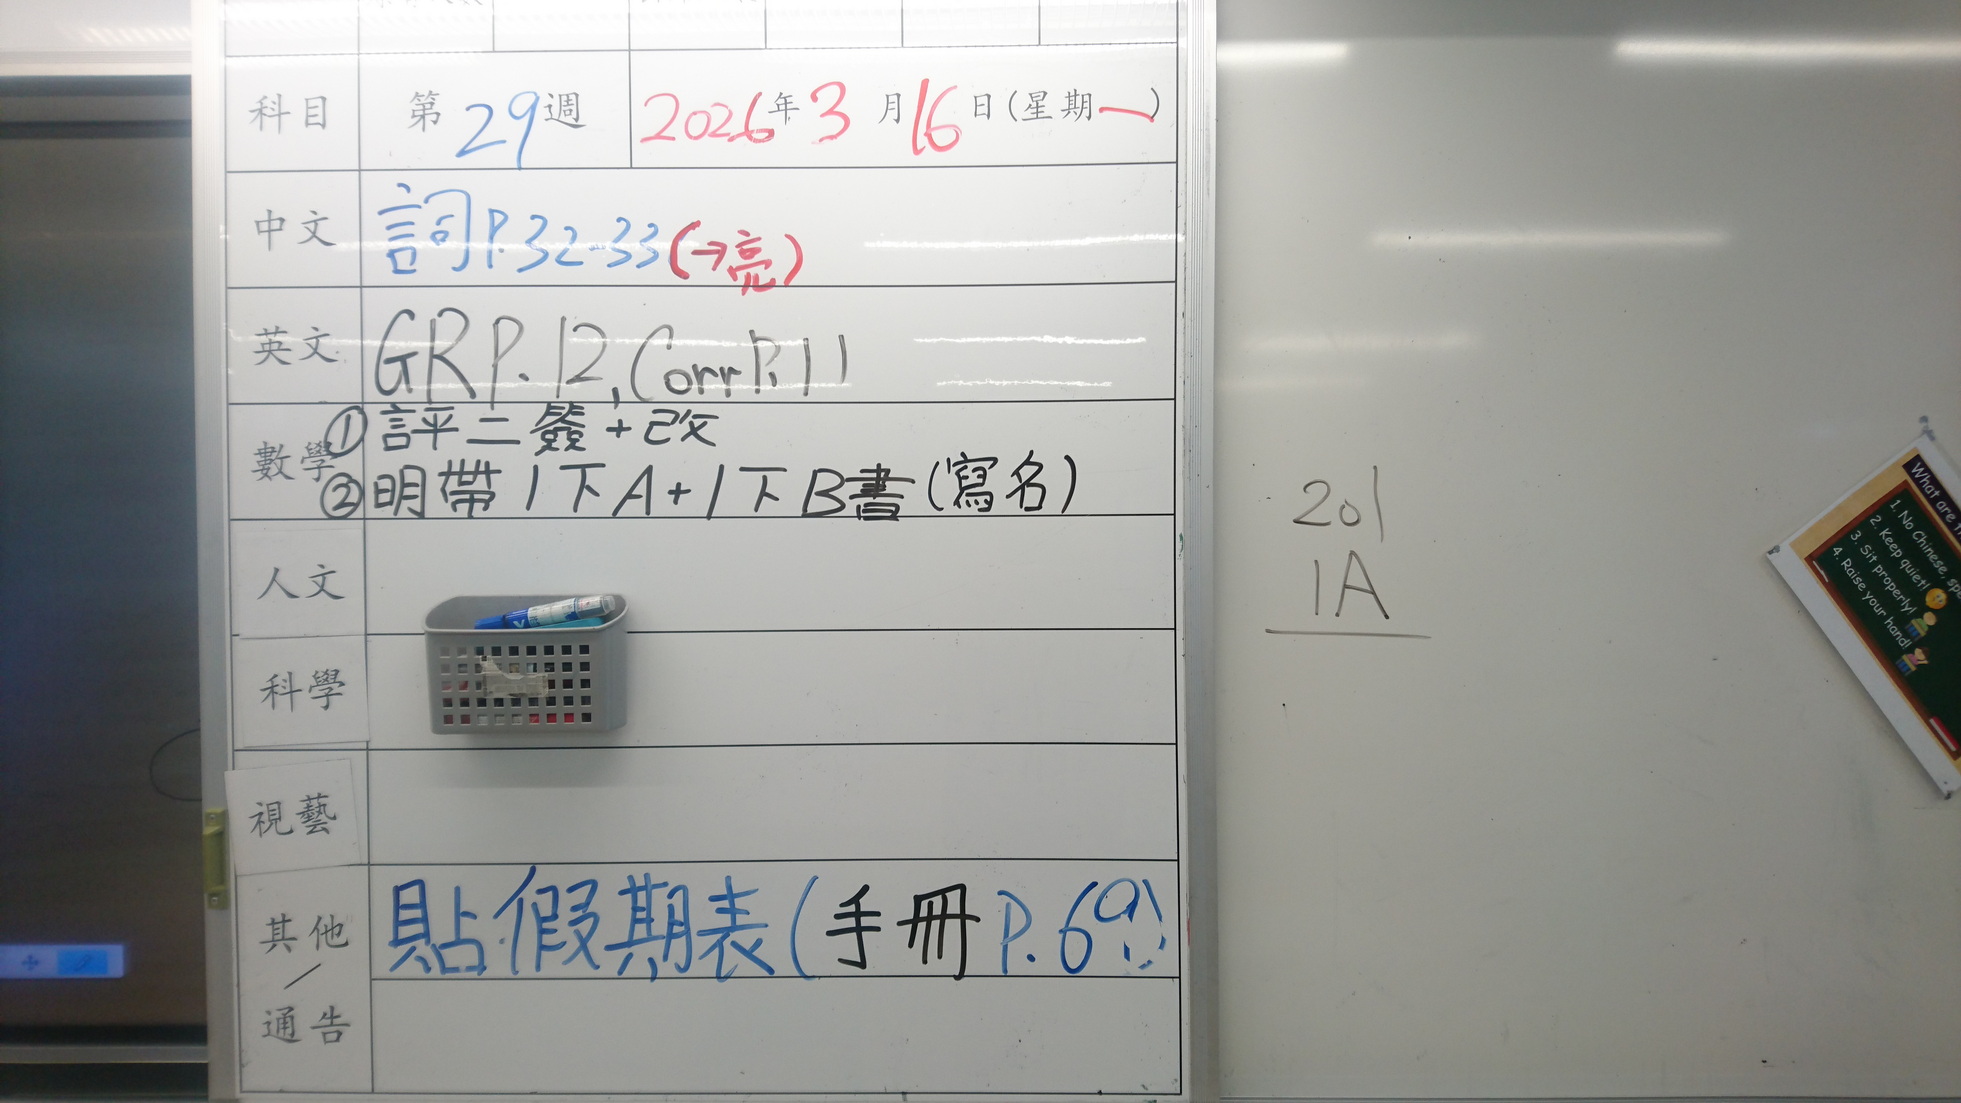 科目 第29週 2026年3月16日(星期一)
中文 詞P.32-33(→亮)
英文 GR P.12, Corr P.11
數學 ①評二簽+改
②明帶1下A+1下B書(寫名)
人文
科學
視藝
其他/通告 貼假期表(手冊P.69)
201
1A
What are
1. No Chinese,
2. Keep quiet!
3. Sit properly!
4. Raise your hand!